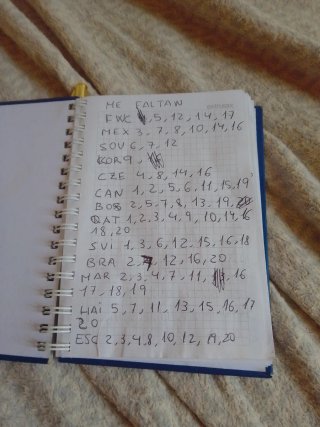 ME FALTAN
FWC 5, 12, 14, 17
MEX 3, 7, 8, 10, 14, 16
SOU 6, 7, 12
KOR 9,
CZE 4, 8, 14, 16
CAN 1, 2, 5, 6, 11, 15, 19
BOS 2, 5, 7, 8, 13, 19,
QAT 1, 2, 3, 4, 9, 10, 14, 16
18, 20
SUI 1, 3, 6, 12, 15, 16, 18
BRA 2, 12, 16, 20
MAR 2, 3, 4, 7, 11, 16
17, 18, 19
HAI 5, 7, 11, 13, 15, 16, 17
20
ESC 2, 3, 4, 8, 10, 12, 19, 20